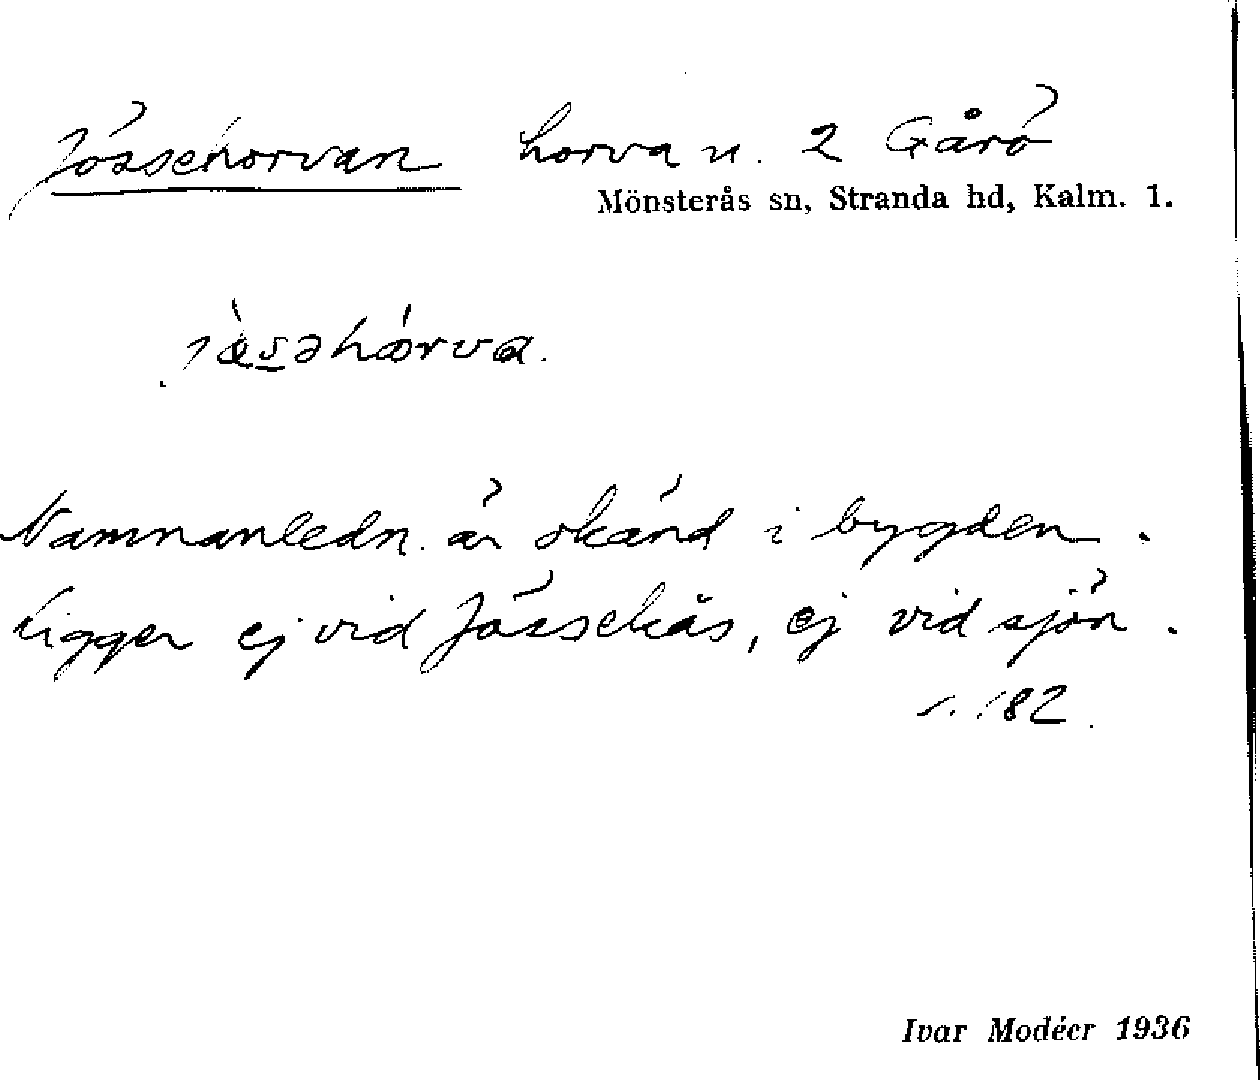 Jössehorvan horva u. 2 Gårö
Mönsterås sn, Stranda hd, Kalm. l.
Namnanledn. är okänd i bygden.
Ligger ej vid Jössekås, ej vid sjön.
s. 182.
Ivar Modéer 1936